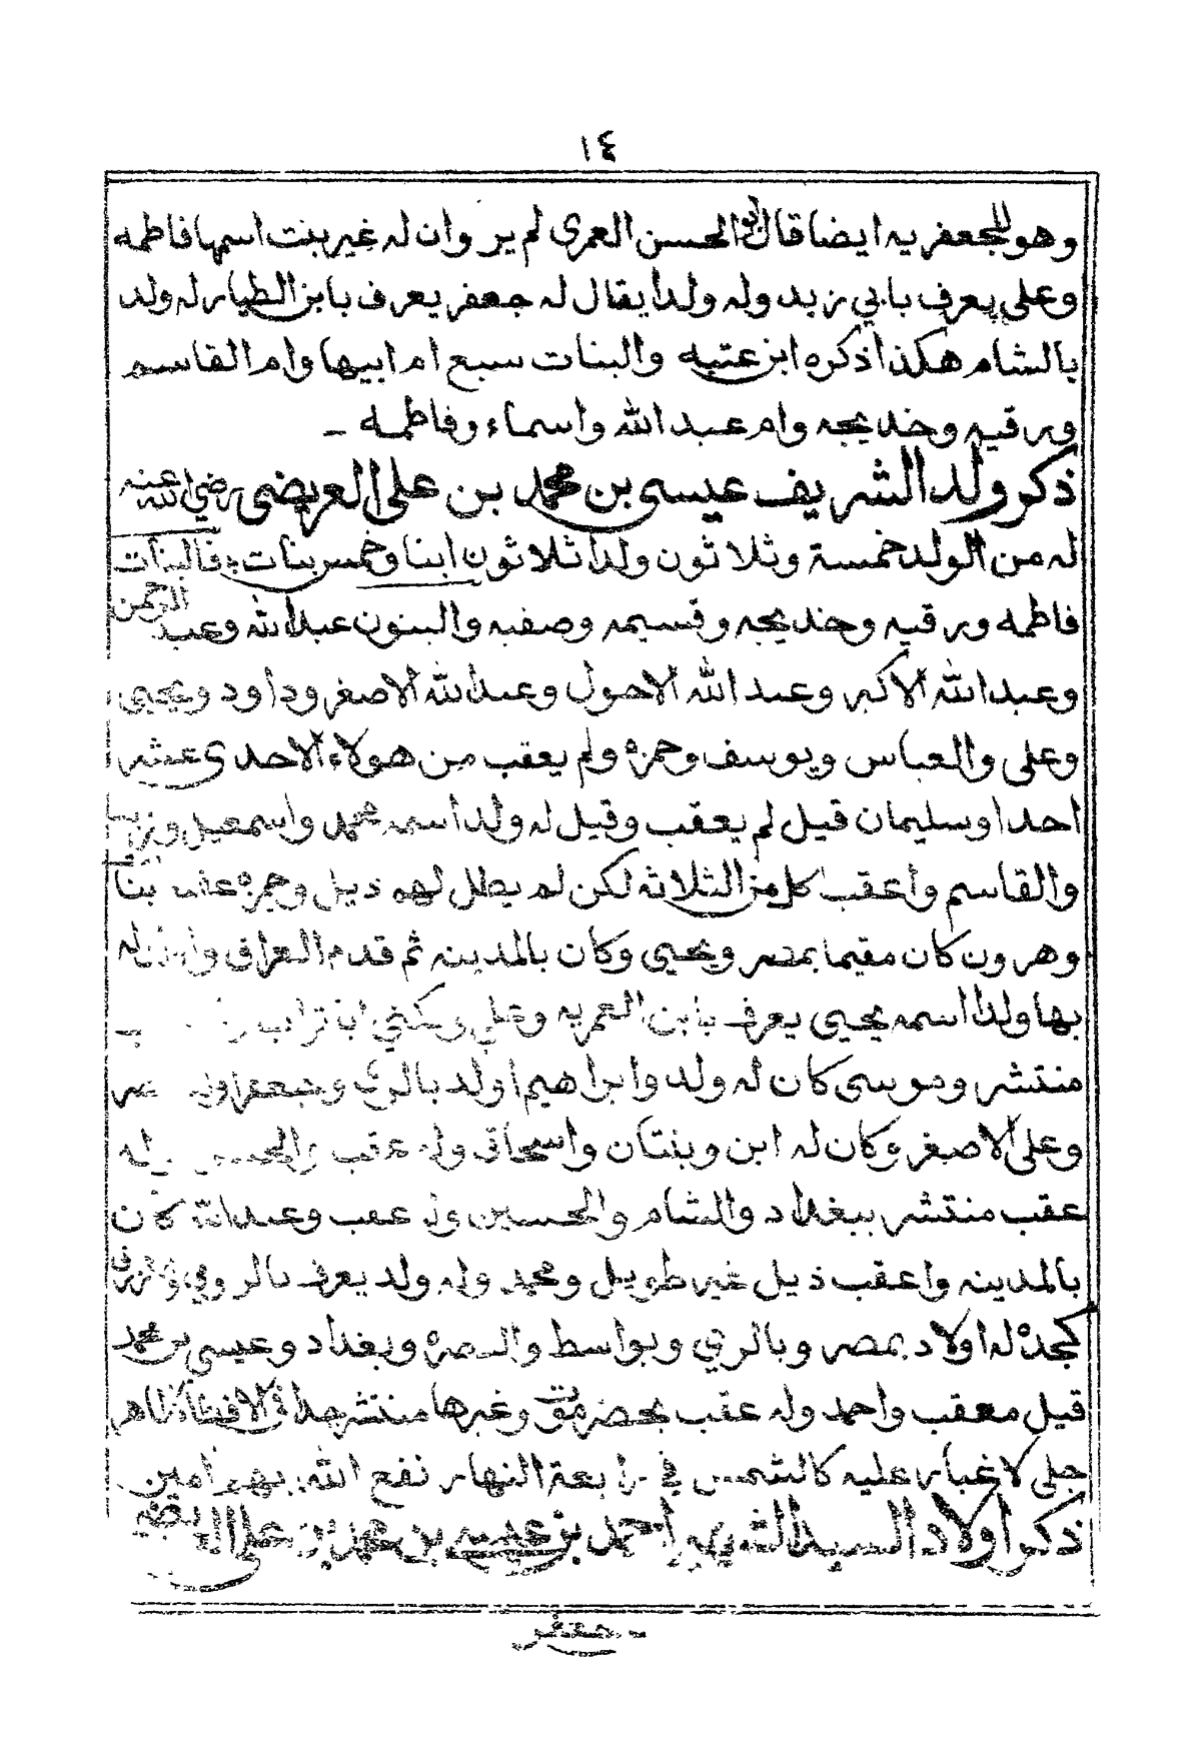 ١٤
وهو للجعفريه ايضا قال ابو الحسن العمري لم ير وان له غير بنت اسمها فاطمه
وعلى يعرف بابي زيد وله ولدا يقال له جعفر يعرف بابن الطيار له ولد
بالشام هكذا ذكره ابن عتبه والبنات سبع ام ابيها وام القاسم
ورقيه وخديجه وام عبد الله واسماء وفاطمه ـ
ذكر ولد الشريف عيسى بن محمد بن على العريضى رضي الله عنه
له من الولد خمسة وثلاثون ولدا ثلاثون ابنا وخمس بنات فالبنات
فاطمه ورقيه وخديجه وقسيمه وصفيه والبنون عبد الله وعبد الرحمن
وعبد الله الاكبر وعبد الله الاحول وعبد الله الاصغر وداود ويحيى
وعلى والعباس ويوسف وحمزه ولم يعقب من هولاء الاحدى عشر
احدا وسليمان قيل لم يعقب وقيل له ولد اسمه محمد واسمعيل وزيد
والقاسم واعقب كل من الثلاثه لكن لم يطل لهم ذيل وحمزه
وهرون كان مقيما بمصر ويحيى وكان بالمدينه ثم قدم العراق له
بها ولدا اسمه يحيى يعرف بابن العمريه وعلى ويكنى ابا تراب
منتشر وموسى كان له ولد وابراهيم اولد بالري وجعفر
وعلى الاصغر وكان له ابن وبنتان واسحاق وله عقب له
عقب منتشر ببغداد والشام والحسين وله عقب وعبد الله كان
بالمدينه واعقب ذيل غير طويل ومحمد وله ولد يعرف بالرومي
كجده له اولاد بمصر وبالري وبواسط والبصره وبغداد وعيسى بن محمد
قيل معقب واحمد وله عقب بحضرموت وغيرها منتشر جدا في الافاق ظاهر
جلى لا غبار عليه كالشمس في رابعة النهار نفع الله بهم امين
ذكر اولاد السيد الشريف احمد بن عيسى بن محمد بن على العريضي
ـ جعفر